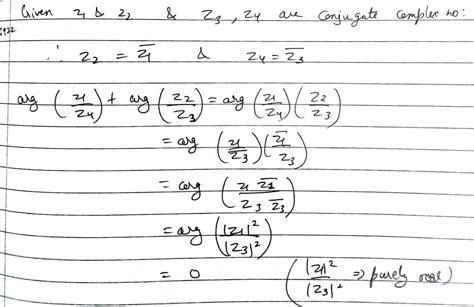 Given z₁ & z₂ & z₃, z₄ are conjugate complex no:
∴ z₂ = z̄₁ & z₄ = z̄₃
arg (z₁/z₄) + arg (z₂/z₃) = arg (z₁/z₄)(z₂/z₃)
= arg (z₁/z̄₃)(z̄₁/z₃)
= arg (z₁ z̄₁ / z₃ z̄₃)
= arg (|z₁|²/|z₃|²)
= 0 (|z₁|²/|z₃|² ⇒ purely real)